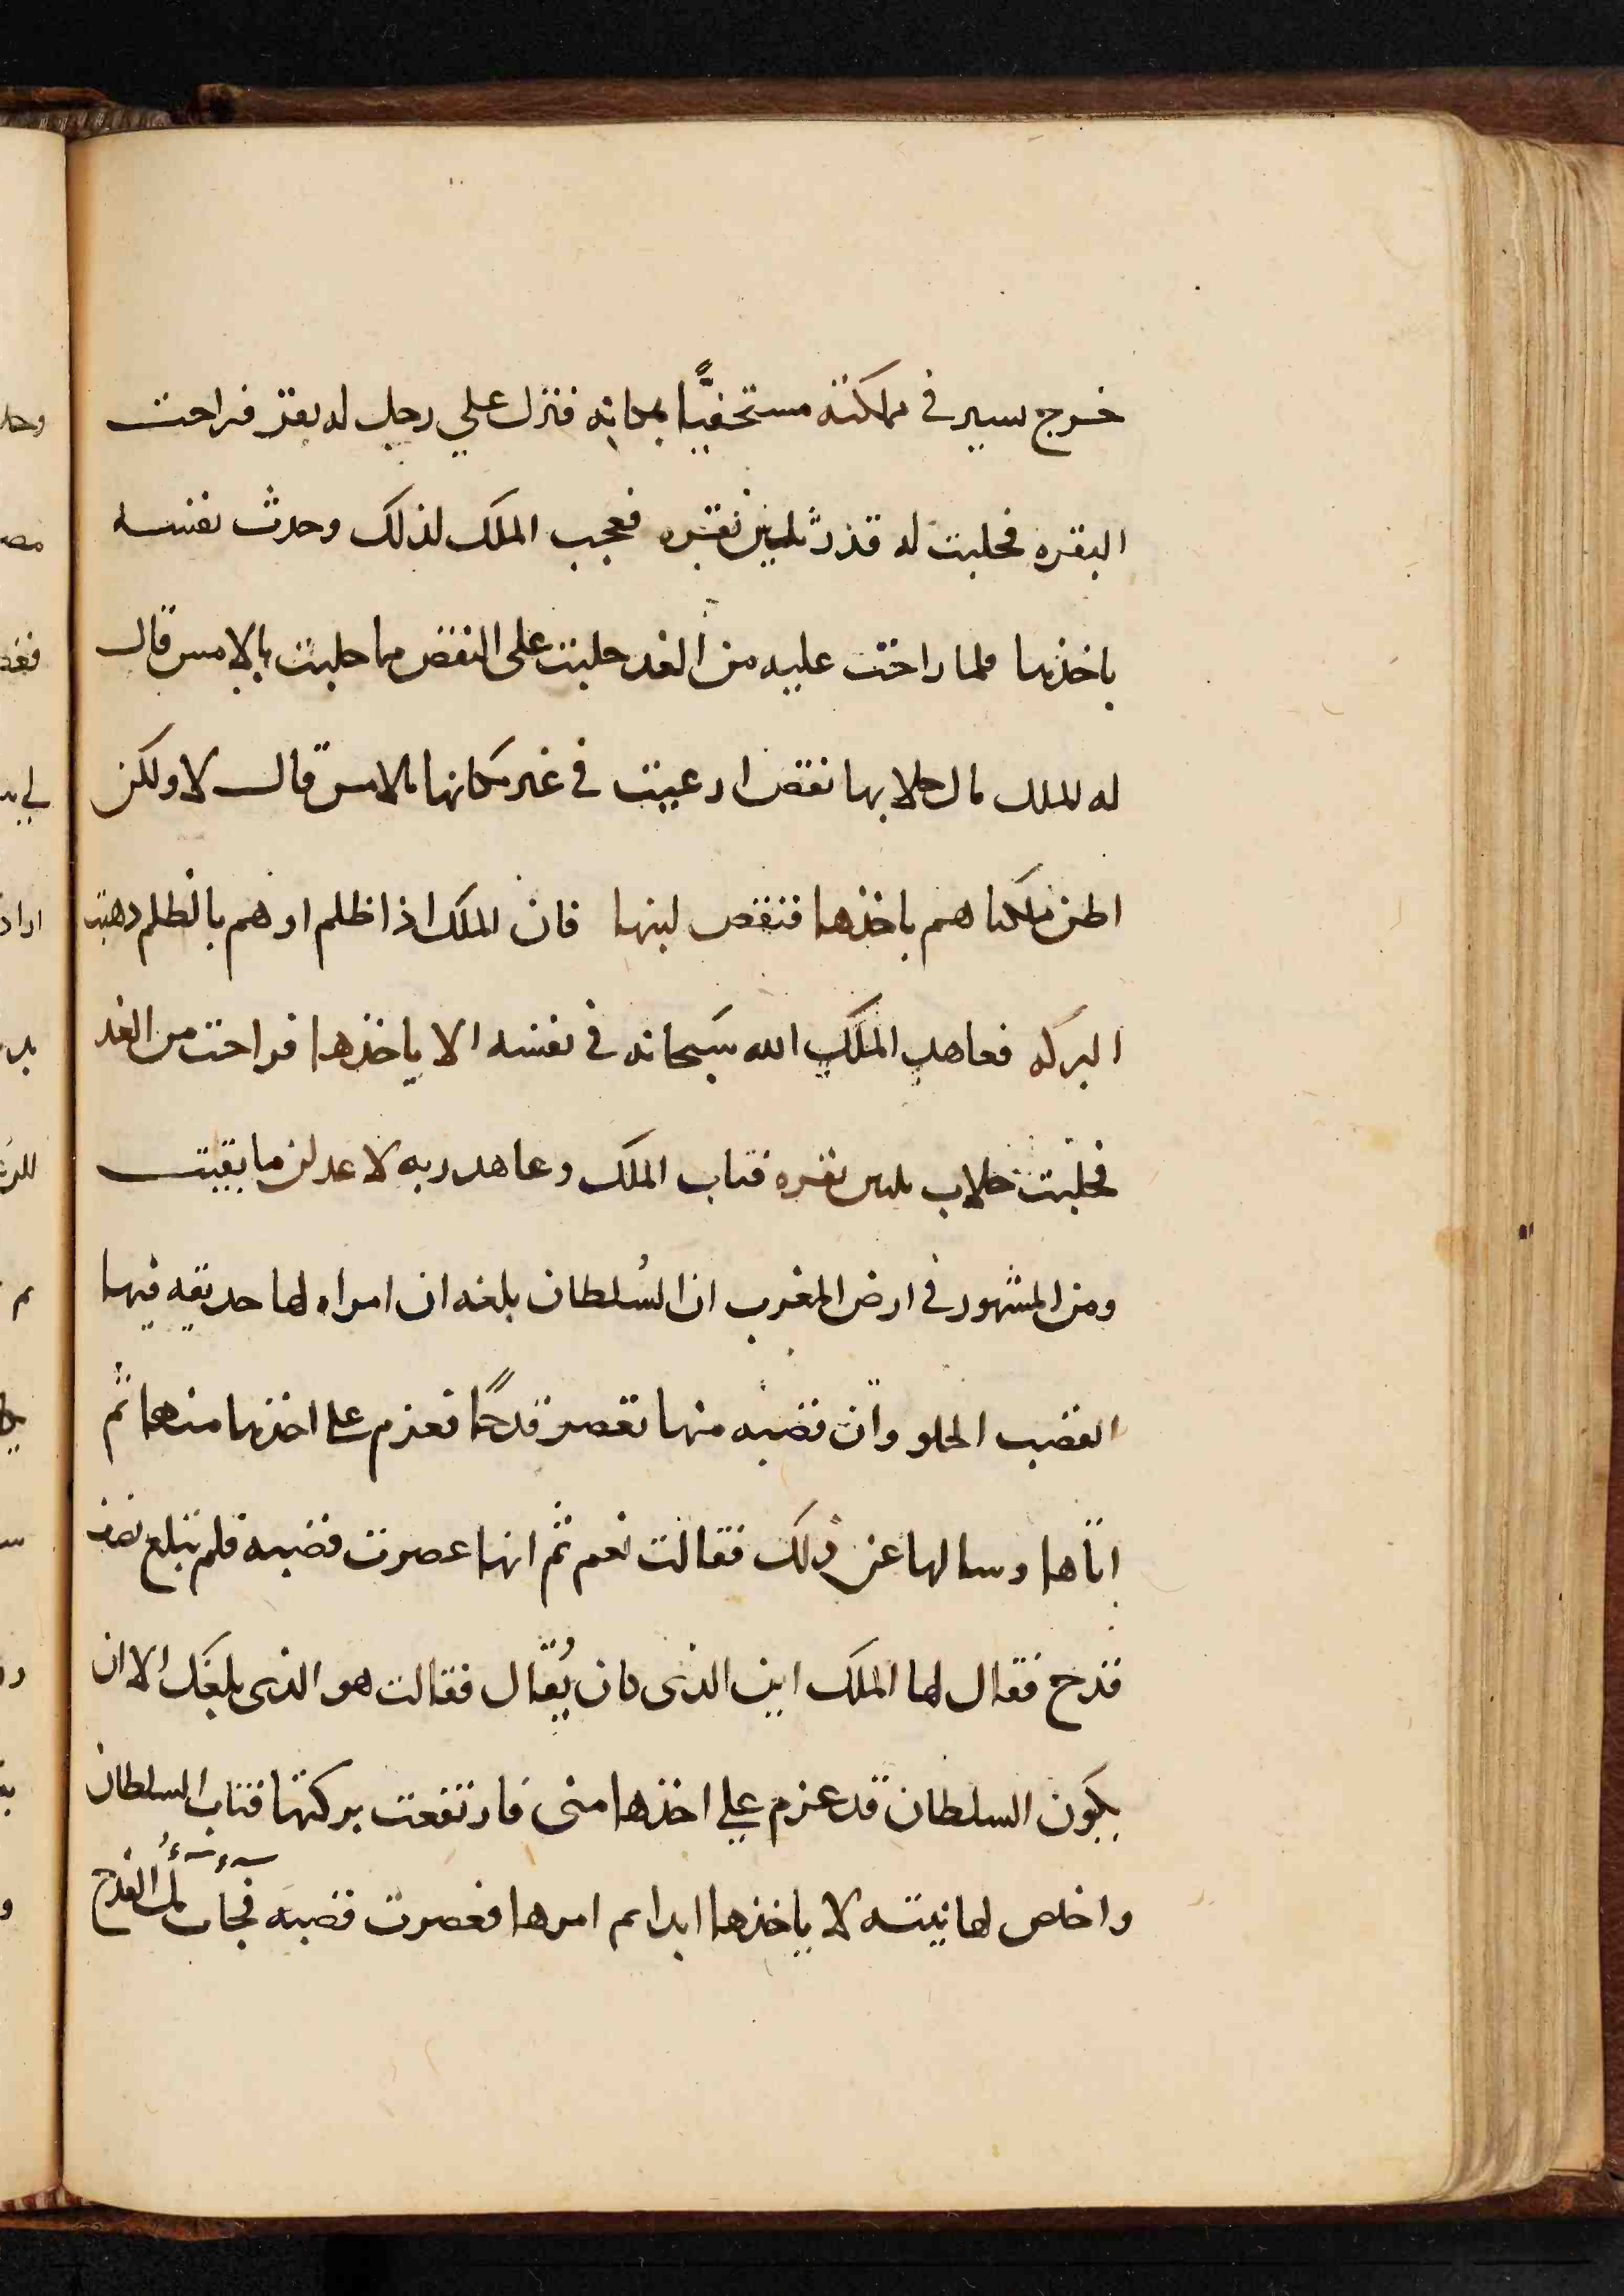 خرج يسير في مملكته مستخفيًّا بمكانه فنزل علي رجل له بقر فراحت
البقره فحلبت له قدر ثلثين بقره فعجب الملك لذلك وحدث نفسه
باخذها فلما راحت عليه من الغد حلبت على النقص مما حلبت بالامس قال
له الملك ما بال حلابها نقص ارعيت في غير مكانها بالامس قال لا ولكن
اظن ملكنا هم باخذها فنقص لبنها فان الملك اذا ظلم او هم بالظلم ذهبت
البركه فعاهد الملك الله سبحانه في نفسه الا ياخذها فراحت من الغد
فحلبت حلاب ثلثين بقره فتاب الملك وعاهد ربه لاعدلن ما بقيت
ومن المشهور في ارض المغرب ان السُلطان بلغه ان امراه لها حديقه فيها
القصب الحلو وان قصبه منها تعصر قدحًا فعزم على اخذها منها ثم
اتاها وسالها عن ذلك فقالت نعم ثم انها عصرت قصبه فلم تبلغ نصف
قدح فقال لها الملك اين الذى كان يُقال فقالت هو الذى بلغك الا ان
يكون السلطان قد عزم علي اخذها منى فارتفعت بركتها فتاب السلطان
واخلص لها نيته لا ياخذها ابدا ثم امرها فعصرت قصبه فجات ملء القدح